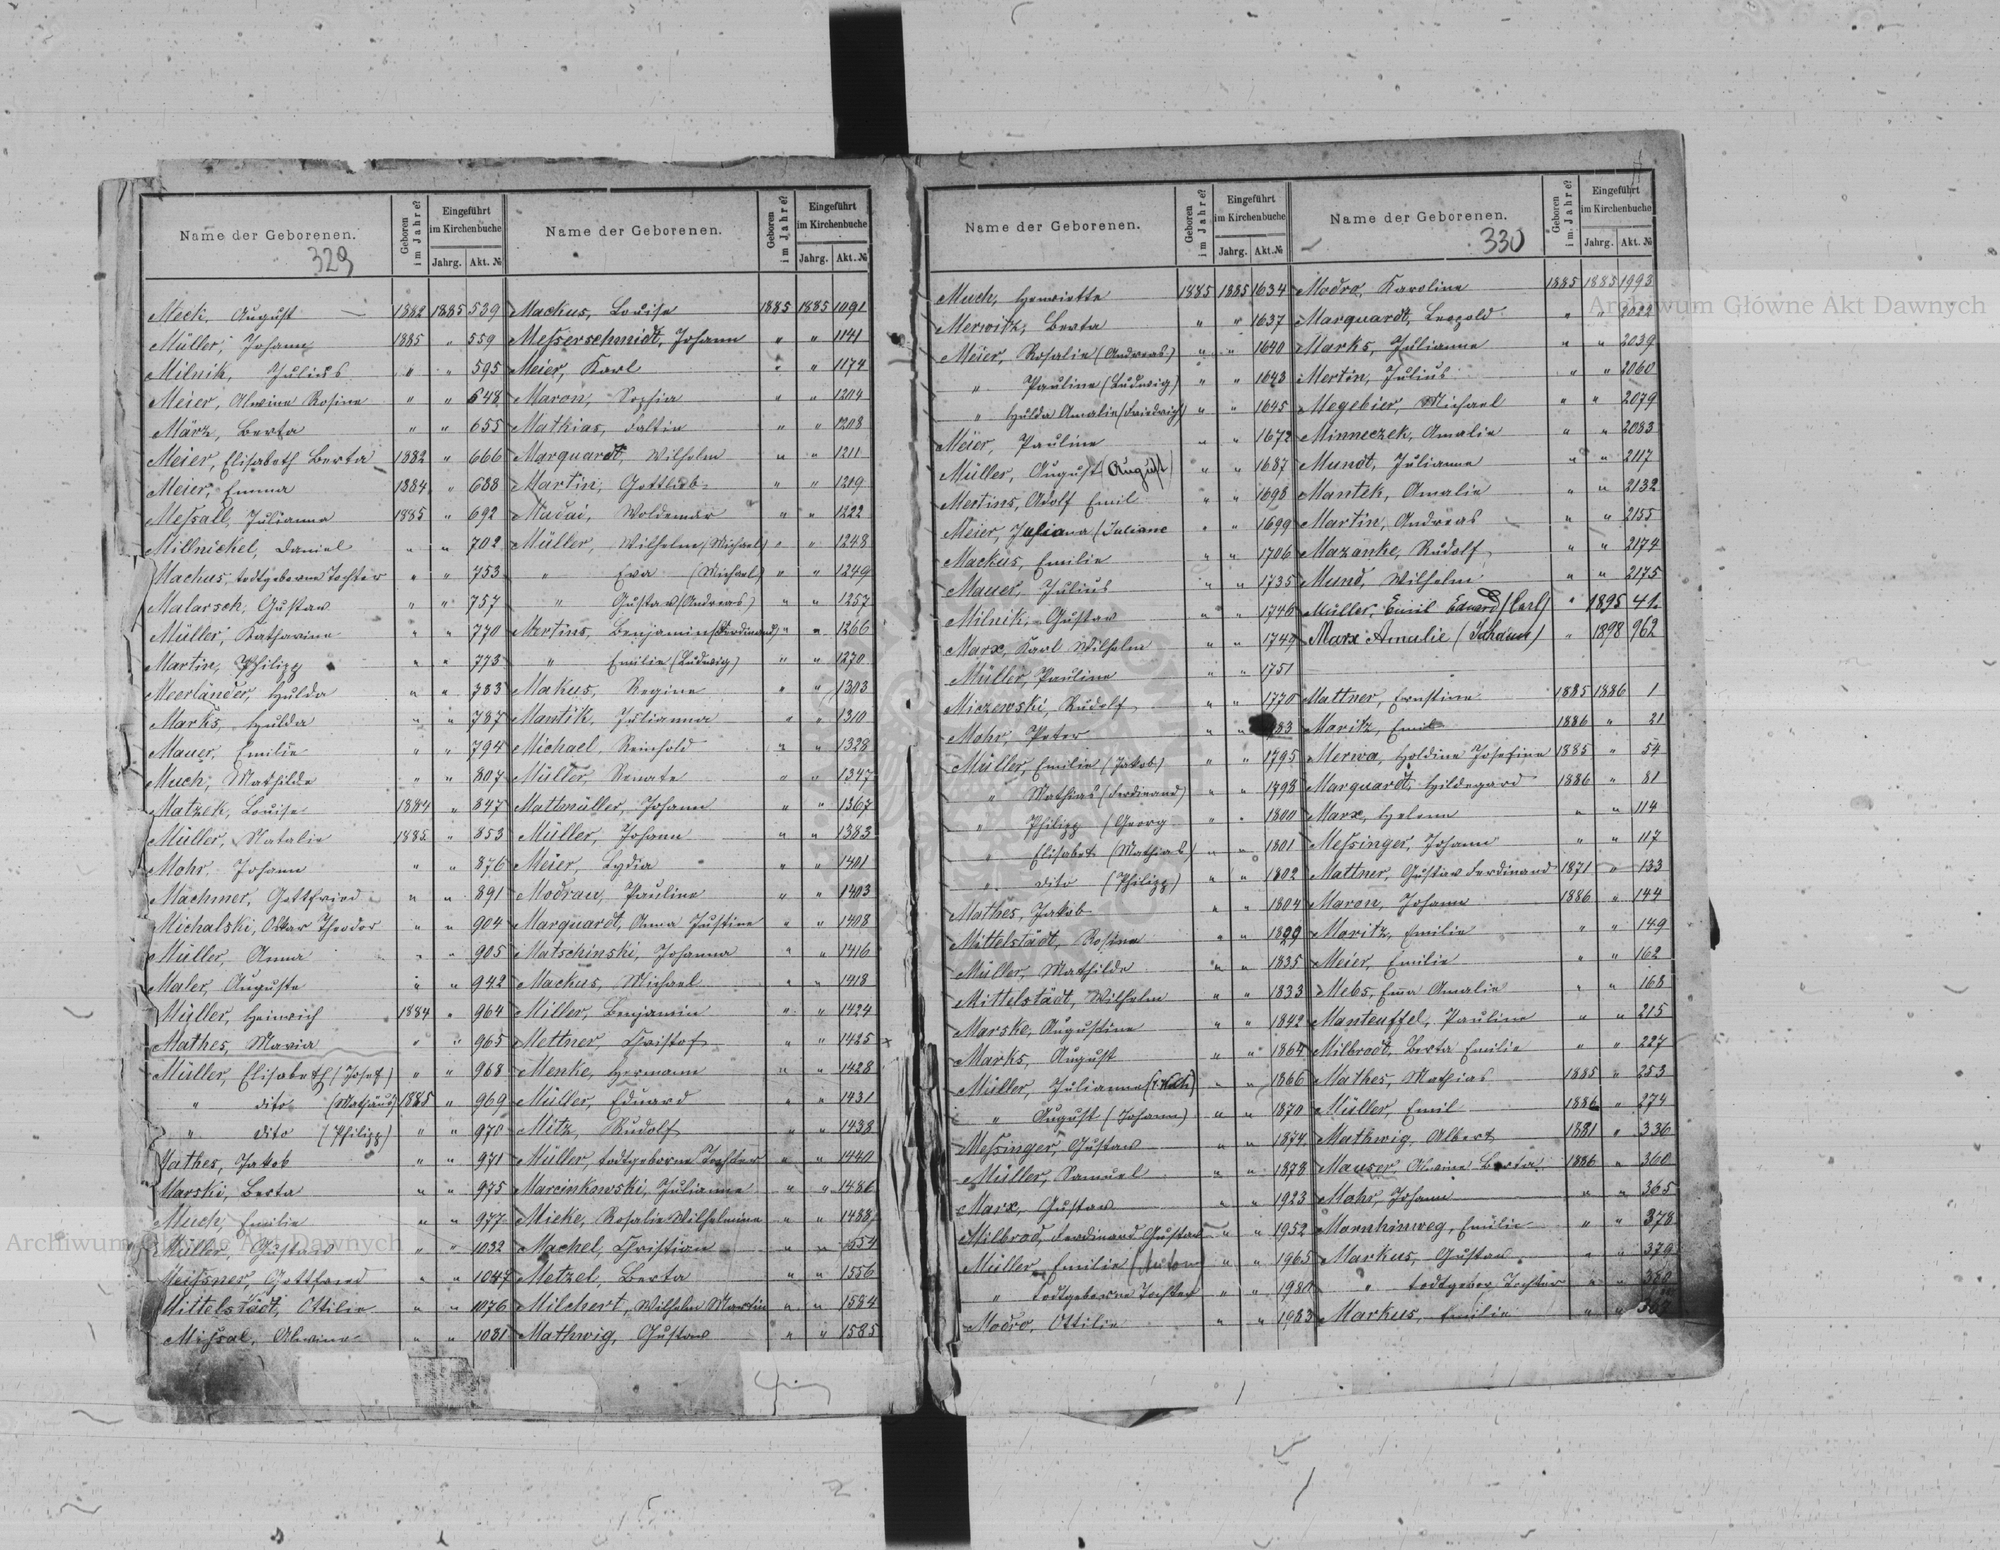 Name der Geborenen. Geboren im Jahre? Eingeführt im Kirchenbuche Jahrg. Akt. №
329
Meck, August — 1882 1885 539
Müller, Johann 1885 " 559
Milnik, Julius " " 595
Meier, Alwine Rosine " " 648
März, Berta " " 655
Meier, Elisabeth Berta 1882 " 666
Meier, Emma 1884 " 688
Meſsall, Julianna 1885 " 692
Millnickel, Daniel " " 702
Machus, todtgeborne Tochter " " 753
Malarsek, Gustav " " 757
Müller, Katharine " " 770
Martin, Philipp " " 773
Meerländer, Hulda " " 783
Marks, Hulda " " 787
Mauer, Emilie " " 794
Much, Mathilde " " 807
Matzek, Louise 1884 " 847
Müller, Natalie 1885 " 853
Mohr, Johann " " 876
Machner, Gottfried " " 891
Michalski, Oskar Theodor " " 904
Müller, Anna " " 905
Maler, Auguste " " 942
Müller, Heinrich 1884 " 964
Mathes, Maria " " 965
Müller, Elisabeth (Josef) " " 968
" dito (Mathäus) 1885 " 969
" dito (Philipp) " " 970
Mathes, Jakob " " 971
Marski, Berta " " 975
Much, Emilie " " 977
Müller, Gustav " " 1032
Meiſsner, Gottfried " " 1047
Mittelstädt, Ottilie " " 1076
Miſsal, Alwine " " 1081
Name der Geborenen. Geboren im Jahre? Eingeführt im Kirchenbuche Jahrg. Akt. №
Mackus, Louise 1885 1885 1091
Meſserschmidt, Johann " " 1141
Meier, Karl " " 1174
Maron, Sophia " " 1204
Mathias, Faltin " " 1208
Marquardt, Wilhelm " " 1211
Martin, Gottlieb " " 1219
Woldemar " " 1222
Müller, Wilhelm (Michael) " " 1248
" Eva (Michael) " " 1249
" Gustav (Andreas) " " 1257
Mertins, Benjamin (Ferdinand) " " 1266
" Emilie (Ludwig) " " 1270
Makus, Regine " " 1303
Mantik, Julianna " " 1310
Michael, Reinhold " " 1328
Müller, Renate " " 1347
Mattmüller, Johann " " 1367
Müller, Johann " " 1383
Meier, Lydia " " 1401
Modrau, Pauline " " 1403
Marquardt, Anna Justine " " 1408
Matschinski, Johanna " " 1416
Mackus, Michael " " 1418
Miller, Benjamin " " 1424
Mettner, Christof " " 1425
Menke, Hermann " " 1428
Müller, Eduard " " 1431
Mitz, Rudolf " " 1438
Müller, todtgeborne Tochter " " 1440
Marcinkowski, Julianna " " 1486
Micke, Rosalie Wilhelmine " " 1488
Machel, Christian " " 1554
Metzel, Berta " " 1556
Milchert, Wilhelm Martin " " 1584
Mathwig, Gustav " " 1585
Name der Geborenen. Geboren im Jahre? Eingeführt im Kirchenbuche Jahrg. Akt. №
Much, Henriette 1885 1885 1634
Merwitz, Berta " " 1637
Meier, Rosalie (Andreas) " " 1640
" Pauline (Ludwig) " " 1643
" Hulda Amalie (Friedrich) " " 1645
Meier, Pauline " " 1672
Müller, August (August) " " 1687
Mertins, Adolf Emil " " 1698
Meier, Juliana (Juliane " " 1699
Mackus, Emilie " " 1706
Mauer, Julius " " 1735
Milnik, Gustav " " 1746
Marx, Karl Wilhelm " " 1749
Müller, Pauline " " 1751
Miszewski, Rudolf " " 1770
Mohr, Peter " " 83
Müller, Emilie (Jakob) " " 1795
" Mathias (Ferdinand) " " 1798
" Philipp (Georg " " 1800
" Elisabet (Mathias) " " 1801
" dito (Philipp) " " 1802
Mathes, Jakob " " 1804
Mittelstädt, Rosine " " 1829
Müller, Mathilde " " 1835
Mittelstädt, Wilhelm " " 1833
Marske, Augustine " " 1842
Marks, August " " 1864
Müller, Julianna " " 1866
" August (Johann) " " 1870
Meſsinger, Gustav " " 1874
Müller, Samuel " " 1878
Marx, Gustav " " 1923
Milbrod, Ferdinand Gustav " " 1952
Müller, Emilie " " 1965
" todtgeborne Tochter " " 1980
Modro, Ottilie " " 1983
Name der Geborenen. Geboren im Jahre? Eingeführt im Kirchenbuche Jahrg. Akt. №
330
Modro, Karoline 1885 1885 1993
Marquardt, Leopold " " 2022
Marks, Julianne " " 2039
Mertin, Julius " " 2060
Megebier, Michael " " 2079
Minneczek, Amalie " " 2083
Mundt, Julianna " " 2117
Mantek, Amalie " " 2132
Martin, Andreas " " 2155
Mazanke, Rudolf " " 2174
Mund, Wilhelm " " 2175
Müller, Emil Eduard (Carl) " 1895 41.
Marx Amalie (Johann) " 1898 962
Mattner, Ernstine 1885 1886 1
Moritz, Emil 1886 " 21
Merwa, Holdine Josefine 1885 " 54
Marquardt, Hildegard 1886 " 81
Marx, Helena " " 114
Meſsinger, Johann " " 117
Mattner, Gustav Ferdinand 1871 " 133
Maron, Johann 1886 " 144
Moritz, Emilie " " 149
Meier, Emilie " " 162
Mebs, Ema Amalie " " 168
Manteuffel, Pauline " " 215
Milbrodt, Berta Emilie " " 227
Mathes, Mathias 1885 " 253
Müller, Emil 1886 " 274
Mathwig, Albert 1881 " 336
Mauser, Alwine Berta 1886 " 360
Mohr, Johann " " 365
Mornhinweg, Emilie " " 378
Markus, Gustav " " 379
" todtgebor. Tochter " " 380
Markus, Emilie " "
Archiwum Główne Akt Dawnych
Archiwum Główne Akt Dawnych